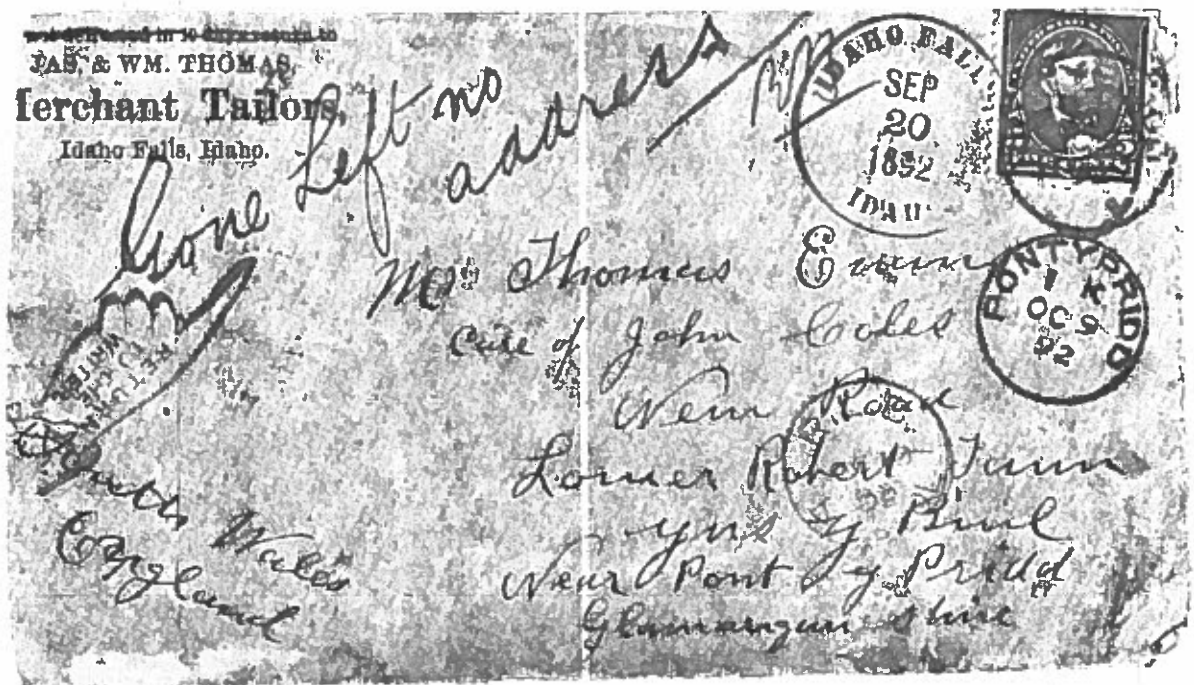 not delivered in 10 days return to
JAS. & WM. THOMAS,
Merchant Tailors,
Idaho Falls, Idaho.
Gone Left no
address
IDAHO FALLS
SEP
20
1892
IDAHO
PONTYPRIDD
1 K
OC 9
92
RETURN
TO THE
WRITER
Mr Thomas Evans
Care of John Coles
New Road
Lower Robert Town
Ynysybwl
Near Pont y Pridd
Glamorgan shire
South Wales
England